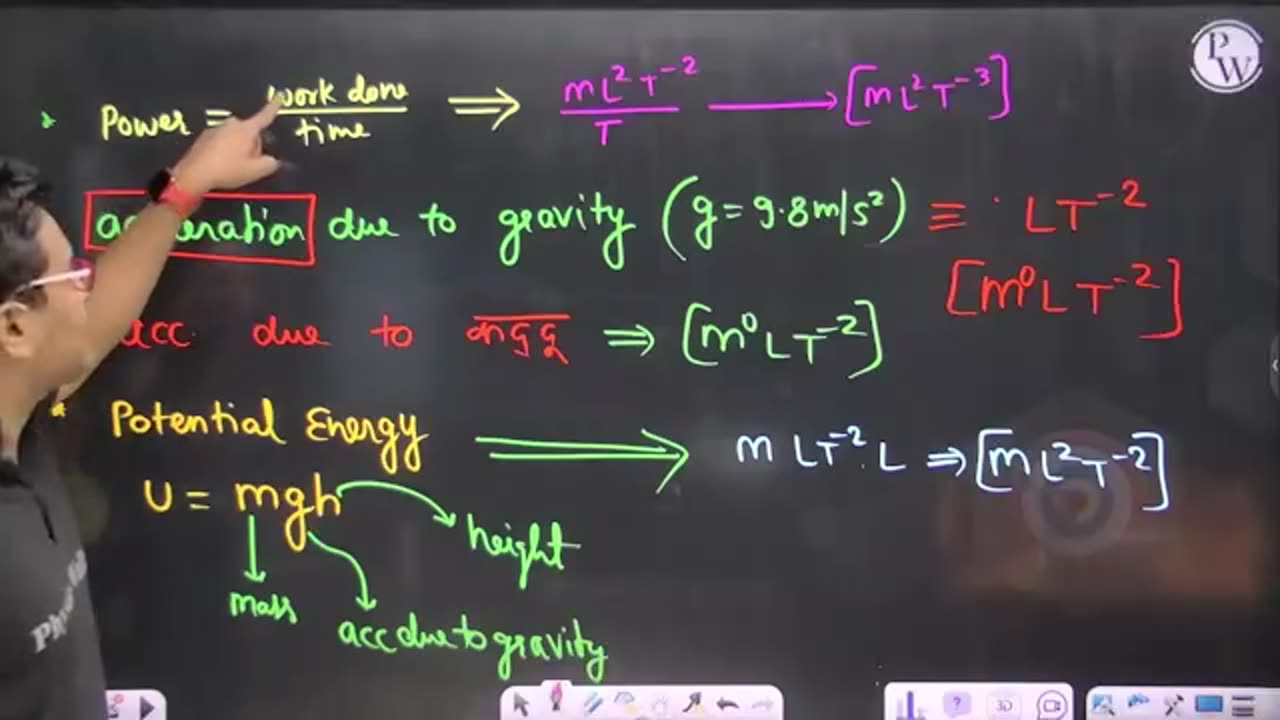 PW
Power = work done / time ⇒ mL²T⁻² / T → [mL²T⁻³]
due to gravity (g = 9.8m/s²) ≡ LT⁻²
[m⁰LT⁻²]
acc. due to ⇒ [m⁰LT⁻²]
Potential Energy ⇒ m LT⁻².L ⇒ [mL²T⁻²]
U = mgh
height
mass
acc due to gravity
3D